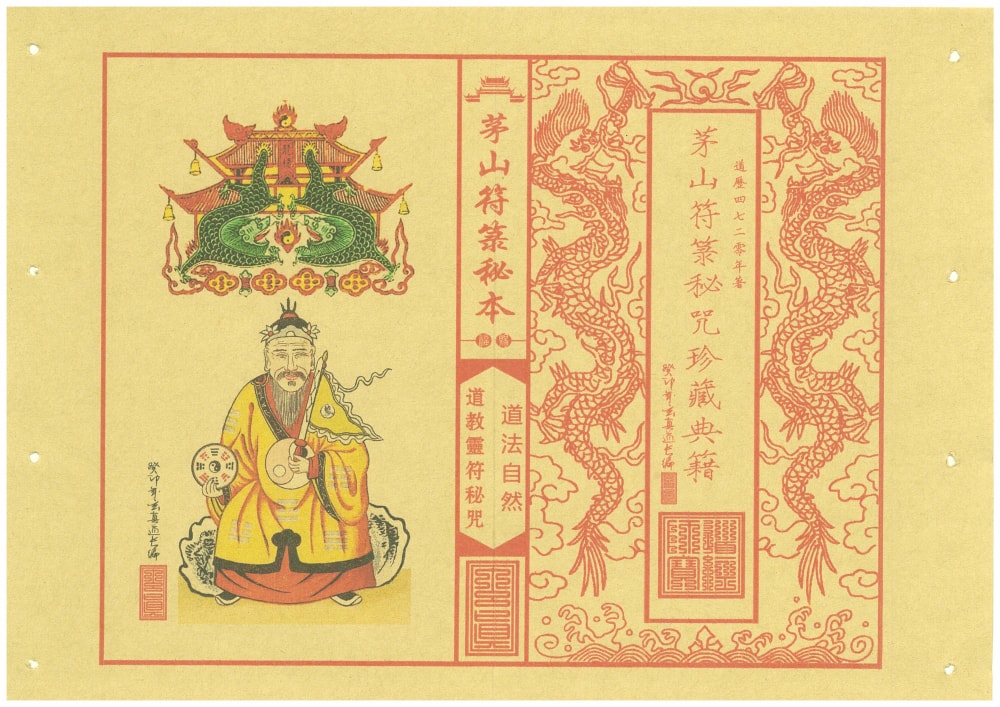 道歷四七二零年著
茅山符箓秘咒珍藏典籍
癸卯年玄真道长编
道經師寶
茅山符箓秘本
道法自然
道教靈符秘咒
癸卯年玄真道长编